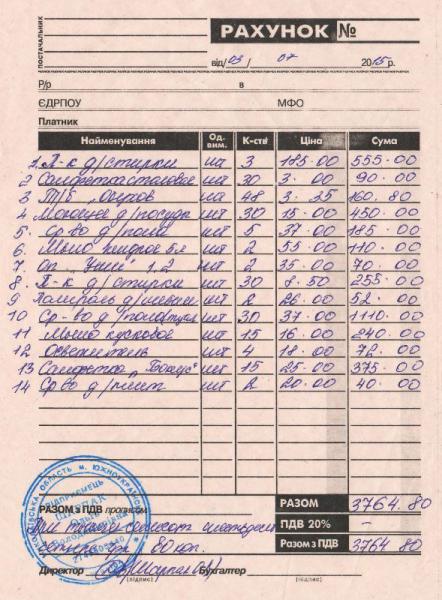 ПОСТАЧАЛЬНИК
РАХУНОК №
від/ 03 / 07 2015 р.
Р/р в
ЄДРПОУ МФО
Платник
Найменування Од. вим. К-сть Ціна Сума
1. П-к д/стирки шт 3 185.00 555.00
2 шт 30 3.00 90.00
3 Т/б шт 48 3.35 160.80
4 Моющее д/посуды шт 30 15.00 450.00
5. ср-во д/пола шт 5 37.00 185.00
6. Мыло жидкое 5л шт 2 55.00 110.00
7. 1.2 шт 2 35.00 70.00
8. П-к д/стирки шт 30 8.50 255.00
9 шт 2 26.00 52.00
10 Ср-во д/ шт 30 37.00 1110.00
11 Мыло кусковое шт 15 16.00 240.00
12 Освежитель шт 4 18.00 72.00
13 Салфетка шт 15 25.00 375.00
14 Ср-во д/плит шт 2 20.00 40.00
РАЗОМ 3764.80
РАЗОМ З ПДВ прописом
ПДВ 20% –
Три тисячи сімсот шістдесят
чотири грн. 80 коп.
Разом з ПДВ 3764 80
Директор Бухгалтер
(підпис) (підпис)